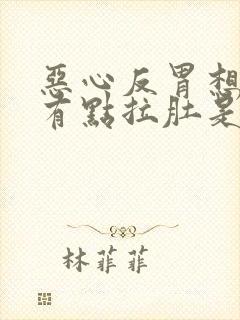 惡心反胃想
有點拉肚是
林菲菲